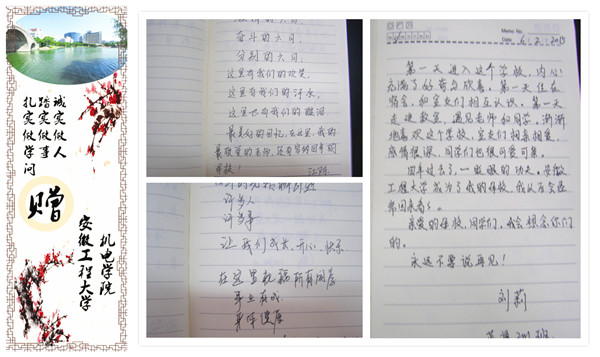 诚实做人
踏实做事
扎实做学问
赠
机电学院
安徽工程大学
奋斗的六月,
分别的六月,
这里有我们的欢笑,
这里有我们的汗水,
这里也有我们的眼泪
最美好的回忆,在这里,我的
最敬爱的老师,还有曾经四年的
母校!
许多人
许多事
让我们成长、开心、快乐
在这里祝福所有同学
事业有成
身体健康
Memo No.
Date
第一天进入这个学校,内心
充满了好奇与欣喜。第一天住在
宿舍,和室友们相互认识。第一天
走进教室,遇见老师和同学。渐渐
地喜欢这个学校,室友们相亲相爱,
感情很深,同学们也很可爱可亲。
四年过去了,一眨眼的功夫,安徽
工程大学成为了我的母校,我以后会经
常回来看看。
亲爱的母校,同学们,我会想念你们
的。
永远不要说再见!
刘莉